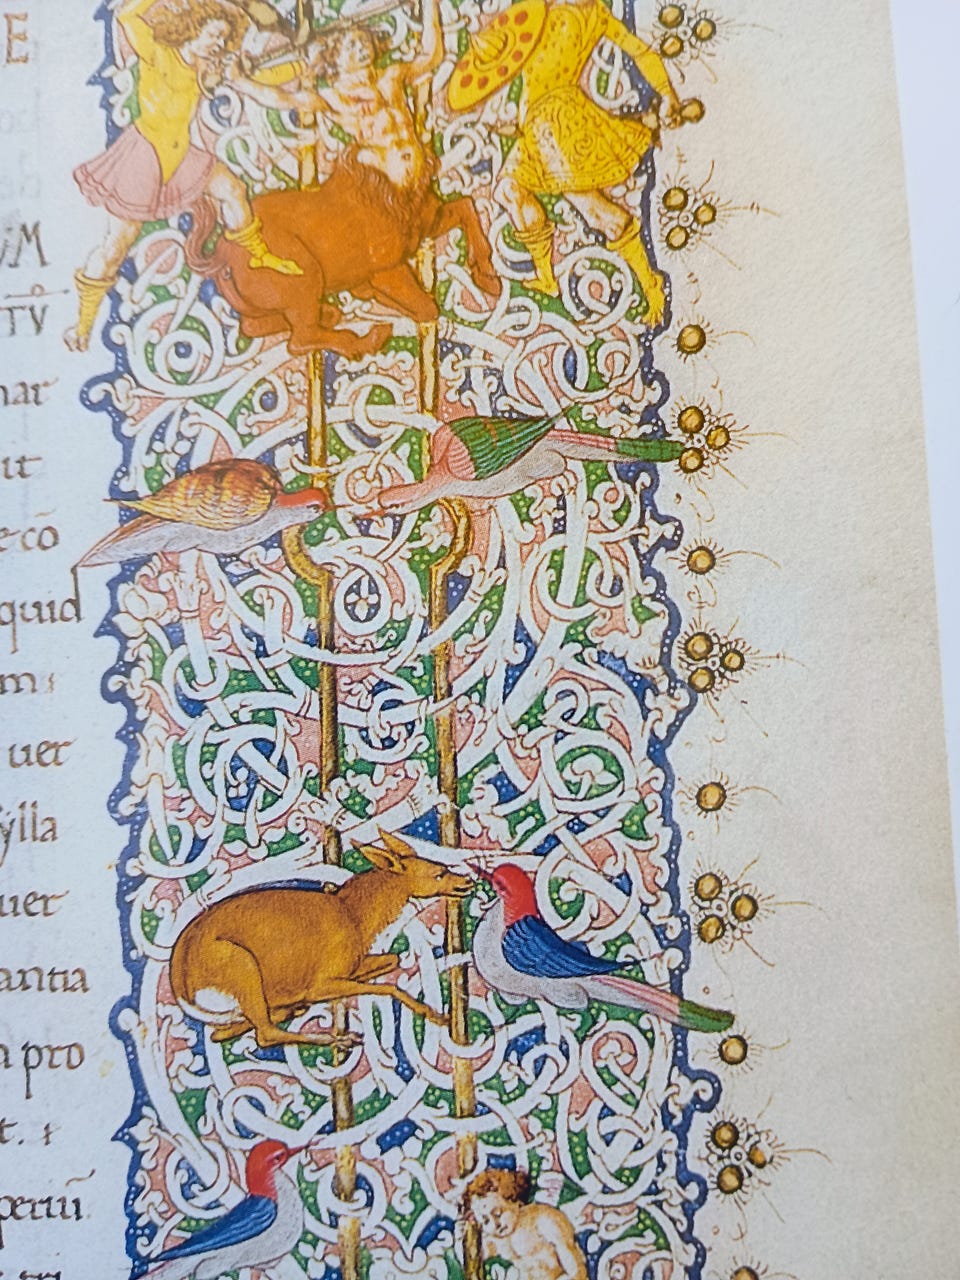 E
VM
TV
nar
it
e cō
quid
m:
uer
ylla
uer
antia
n pro
t. &
periū